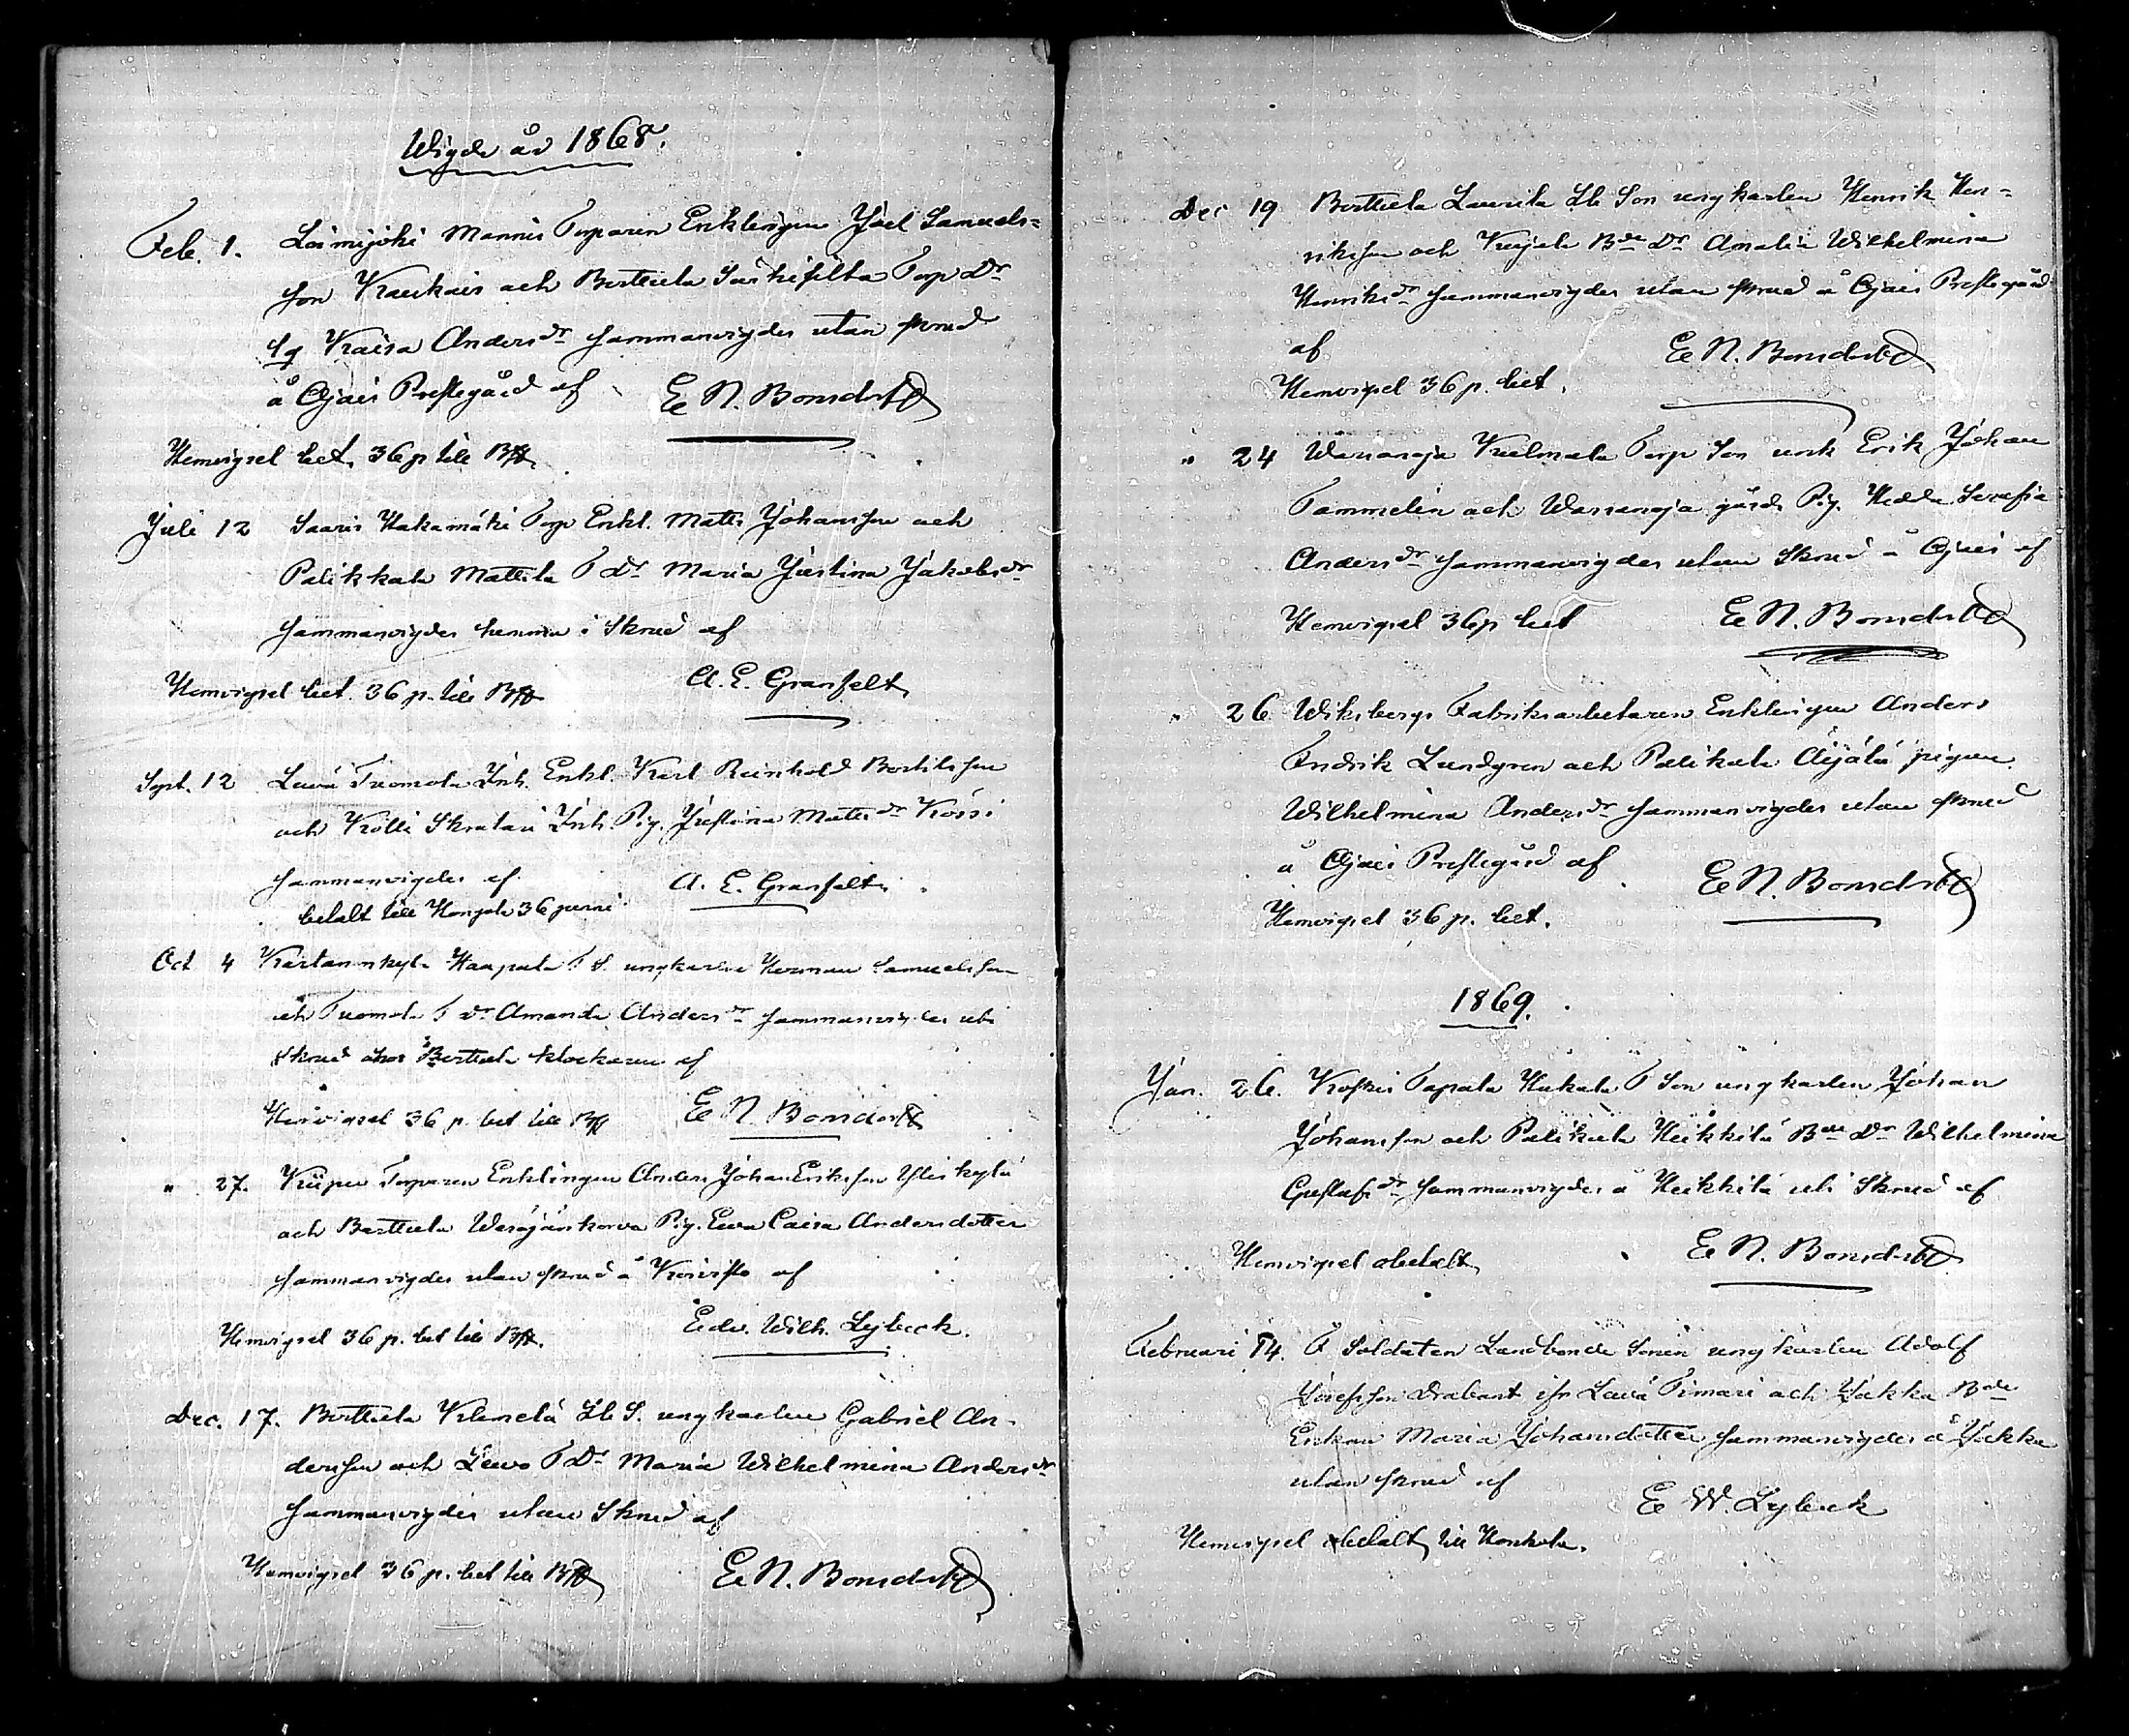 Wigde år 1868.
Feb. 1. Loimijoki Mannis Torparen Enklingen Joel Samuels=
son Kaukais och Berttula Särkisilta Torp Dr
Kaisa Andersdr sammanvigdes utan skrud
å Ojais Prestegård af E N. Bonsdorff
Hemvigsel bet. 36 p till Bff
Juli 12 Saaris Hakamäki Torp Enkl. Matts Johansson och
Palikkala Mattila T Dr Maria Justina Jakobsdr
sammanvigdes hemma i Skrud af
Hemvigsel bet. 36 p. till Bff A. E. Granfelt
Sept. 12 Lawä Tuomola Inh. Enkl. Karl Reinhold Bertilsson
och Kölli Skratari Inh. Pig. Justina Mattsdr Kössi
sammanvigdes af A. E. Granfelt
betalt till 36 penni
Oct 4 Kartanonkylä Haapala T S. ungkarlen Herman Samuelsson
och Tuomola T Dr Amanda Andersdr sammanvigdes uti
Skrud hos Berttula klockaren af
Hemvigsel 36 p. bet till Bff E N. Bonsdorff
" 27. Torparen Enklingen Anders Johan Eriksson Yliskylä
och Berttula Pig. Eva Caisa Andersdotter
sammanvigdes utan skrud å Koivisto af
Hemvigsel 36 p. bet till Bff. Edv. Wilh. Lybeck.
Dec. 17. Berttula Klemelä Lb S. ungkarlen Gabriel An-
dersson och T Dr Maria Wilhelmina Andersdr
sammanvigdes utan Skrud af
Hemvigsel 36 p. bet till Bff E N. Bonsdorff
Dec 19 Berttula Laurila Lb Son ungkarlen Henrik Hen=
riksson och Kujala Bde Dr Amalia Wilhelmina
Henriksdr sammanvigdes utan skrud å Ojais Prestegård
af E N. Bonsdorff
Hemvigsel 36 p. bet.
" 24 Warsanoja Kulmala Torp Son unk Erik Johan
Tammelin och Warsanoja gårds Pig. Hedda Serafia
Andersdr sammanvigdes utan Skrud å Ojais af
Hemvigsel 36 p bet E N. Bonsdorff
" 26 Wiksbergs Fabriksarbetaren Enklingen Anders
Fredrik Lundgren och Palikala Äijälä pigan
Wilhelmina Andersdr sammanvigdes utan skrud
å Ojais Prestegård af E N. Bonsdorff
Hemvigsel 36 p. bet.
1869.
Jan. 26. Koskis Tapala Hakala T Son ungkarlen Johan
Johansson och Palikala Heikkilä Bde Dr Wilhelmina
Gustafsdr sammanvigdes å Heikkilä uti Skrud af
Hemvigsel obetalt E N. Bonsdorff
Februari 14. F Soldaten Landbonde Sonen ungkarlen Adolf
Josefsson Drabant ifr Lawä Timari och Jakka Bde
Enkan Maria Johansdotter sammanvigdes å Jakka
utan skrud af E W. Lybeck
Hemvigsel betalt till Honkola.